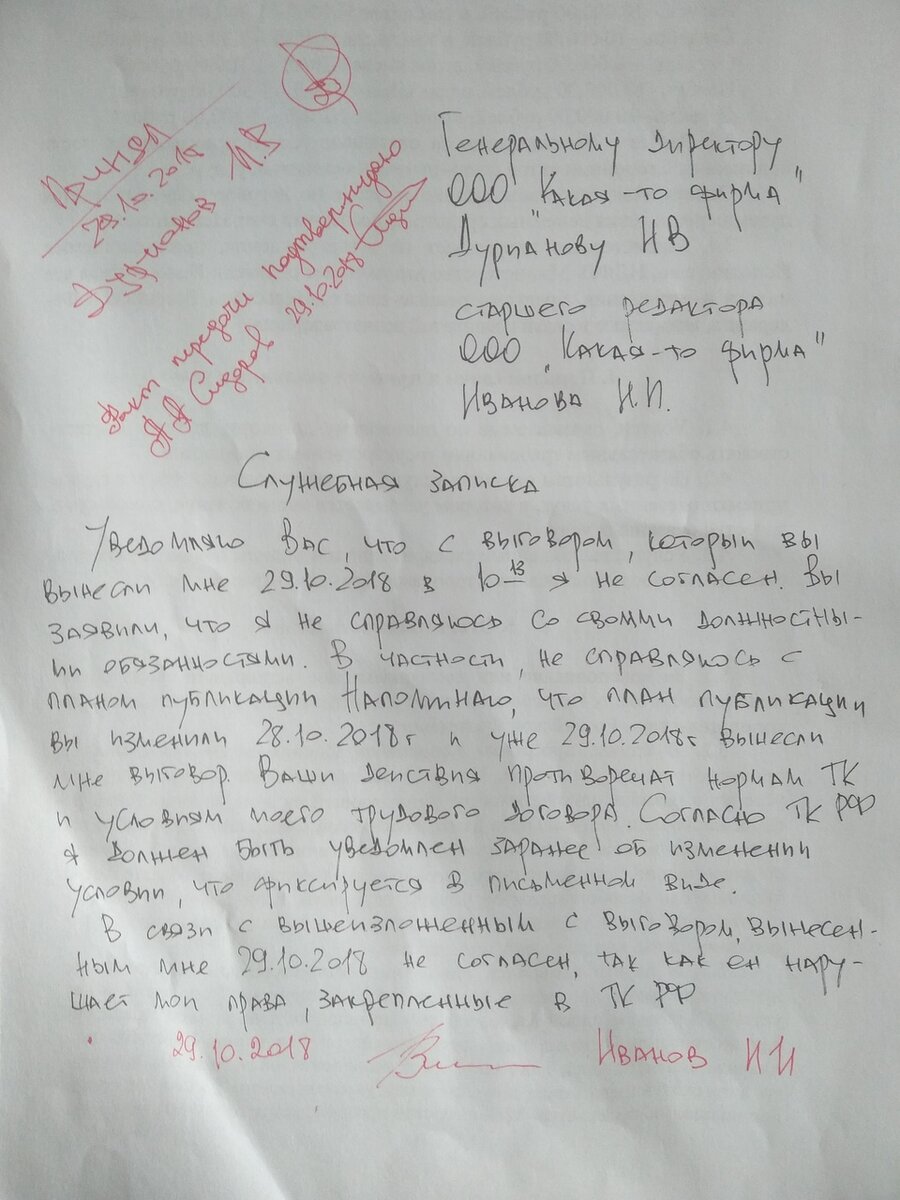 Принял
29.10.2018
Дурианов И.В
Факт передачи подтверждаю
АА Сидоров 29.10.2018
Генеральному директору
ООО "Какая-то фирма"
Дурианову ИВ
старшего редактора
ООО "Какая-то фирма"
Иванова И.И.
Служебная записка
Уведомляю Вас, что с выговором, который вы
вынесли мне 29.10.2018 в 10 13 я не согласен. Вы
заявили, что я не справляюсь со своими должностны-
ми обязанностями. В частности, не справляюсь с
планом публикации Напоминаю, что план публикации
вы изменили 28.10.2018г и уже 29.10.2018г вынесли
мне выговор. Ваши действия противоречат нормам ТК
и условиям моего трудового договора. Согласно ТК РФ
я должен быть уведомлен заранее об изменении
условий, что фиксируется в письменном виде.
В связи с вышеизложенным с выговором, вынесен-
ным мне 29.10.2018 не согласен, так как ен нару-
шает мои права, закрепленные в ТК РФ
29.10.2018 Иванов ИИ